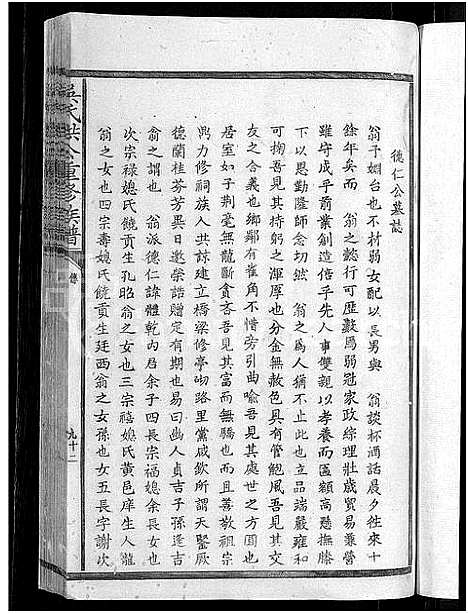 德仁公墓誌
翁于姻台也不材弱女配以長男與　翁談杯酒話晨夕往來十
餘年矣而　翁之懿行可歷數焉弱冠家政綜理壯歲貿易兼營
雖守成乎前業創造倍乎先人事雙親以孝養而匾額高懸撫膝
下以恩勤隆師念切然　翁之為人猶不止此也立品端嚴雍和
可掬吾見其持躬之渾厚也分金無赦色具有管鮑風吾見其交
友之合義也鄉鄰有雀角不惜旁引曲喻吾見其處世之方也
居室如子荆毫無龍斷貪吝吾見其富而無驕也而且善敬祖宗
鼎力修祠族人共諒建橋梁修亭峝路里黨咸飲所謂天鑒厥
德蘭桂芬芳異日邀榮誥贈定有期也易曰幽人貞吉子孫逢吉
翁之謂也　翁派德仁諱體乾內居余子四長宗福媳余長女也
次宗祿媳氏饒貢生孔昭翁之女也三宗禧媳氏黃邑庠生人龍
翁之女也四宗壽媳氏饒貢生廷西翁之女孫也女五長字謝次
吳氏洪公重修族譜
傳
九十二